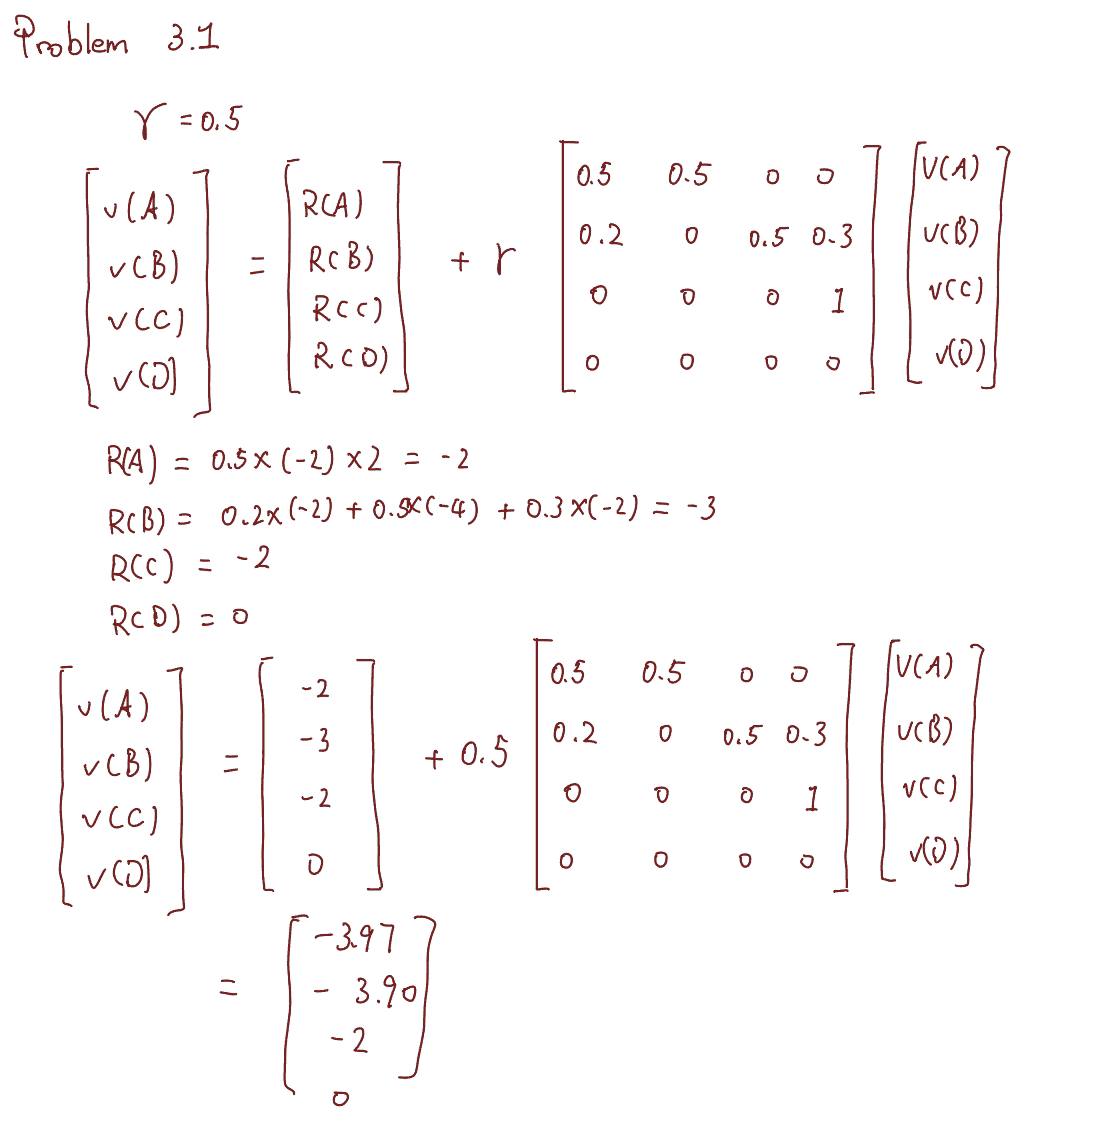 Problem 3.1
γ = 0.5
[v(A) v(B) v(C) v(D)] = [R(A) R(B) R(C) R(D)] + r [0.5 0.5 0 0; 0.2 0 0.5 0.3; 0 0 0 1; 0 0 0 0] [v(A) v(B) v(C) v(D)]
R(A) = 0.5×(-2)×2 = -2
R(B) = 0.2×(-2) + 0.5×(-4) + 0.3×(-2) = -3
R(C) = -2
R(D) = 0
[v(A) v(B) v(C) v(D)] = [-2 -3 -2 0] + 0.5 [0.5 0.5 0 0; 0.2 0 0.5 0.3; 0 0 0 1; 0 0 0 0] [v(A) v(B) v(C) v(D)]
= [-3.97 -3.90 -2 0]